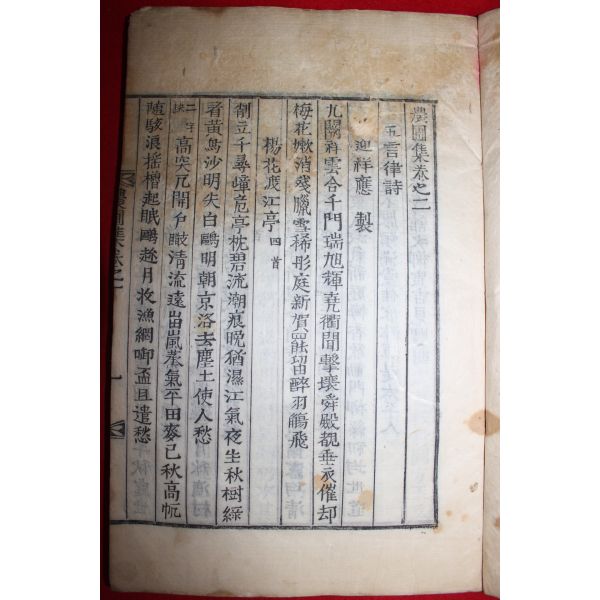 農圃集卷之二
五言律詩
迎祥應製
九闕祥雲合千門瑞旭輝堯衢聞擊壤舜殿覩垂衣催却
梅花嫩消殘臘雪稀彤庭新賀罷留醉羽觴飛
楊花渡江亭四首
削立千尋嶂危亭枕碧流潮痕晩猶濕江氣夜生秋樹綠
看黃鳥沙明失白鷗明朝京洛去塵土使人愁
二字缺高突兀開戶瞰淸流遠出嵐蒸氣平田麥已秋高帆
隨駭浪搖櫓起眠鷗趂月收漁網啣盃且遣愁
農圃集卷之二
一